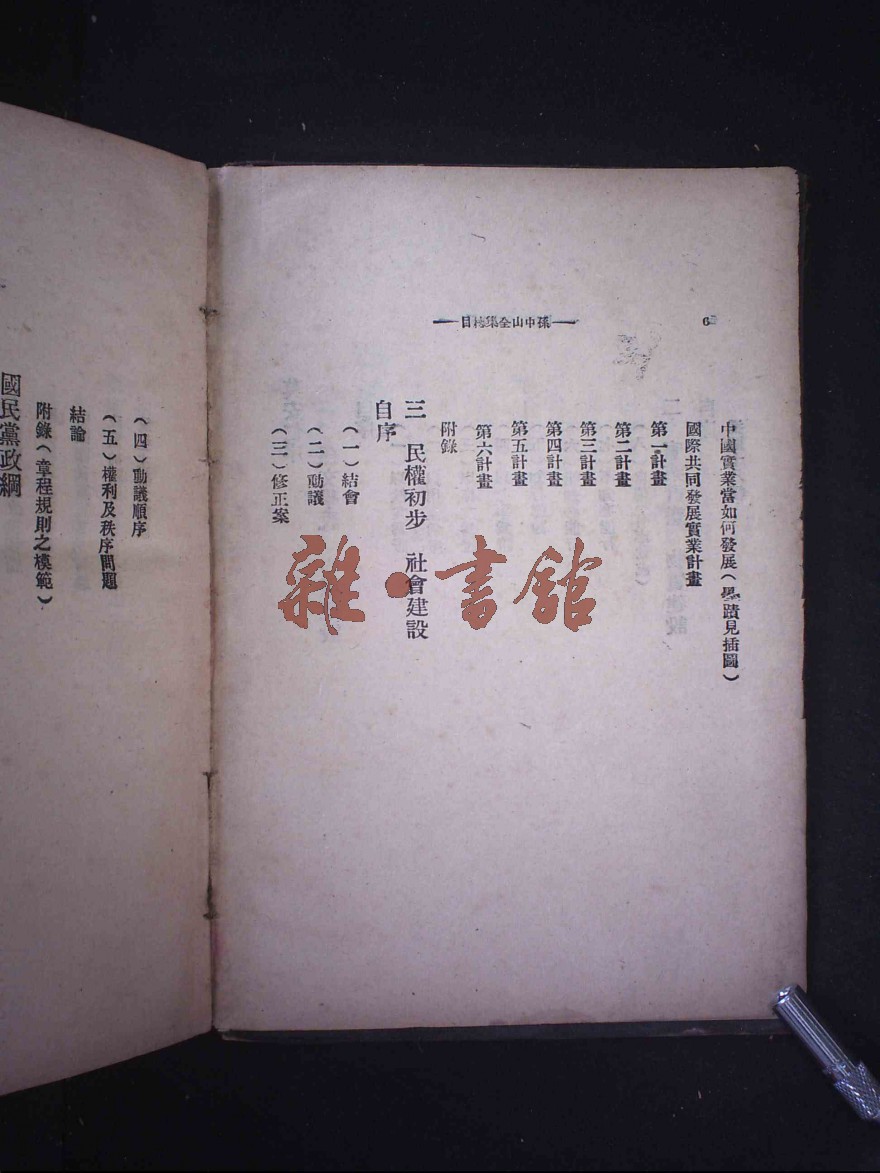 6
孫中山全集總目
中國實業當如何發展（墨蹟見插圖）
國際共同發展實業計畫
第一計畫
第二計畫
第三計畫
第四計畫
第五計畫
第六計畫
附錄
三　民權初步　社會建設
自序
（一）結會
（二）動議
（三）修正案
（四）動議順序
（五）權利及秩序問題
結論
附錄（章程規則之模範）
國民黨政綱
雜·書館